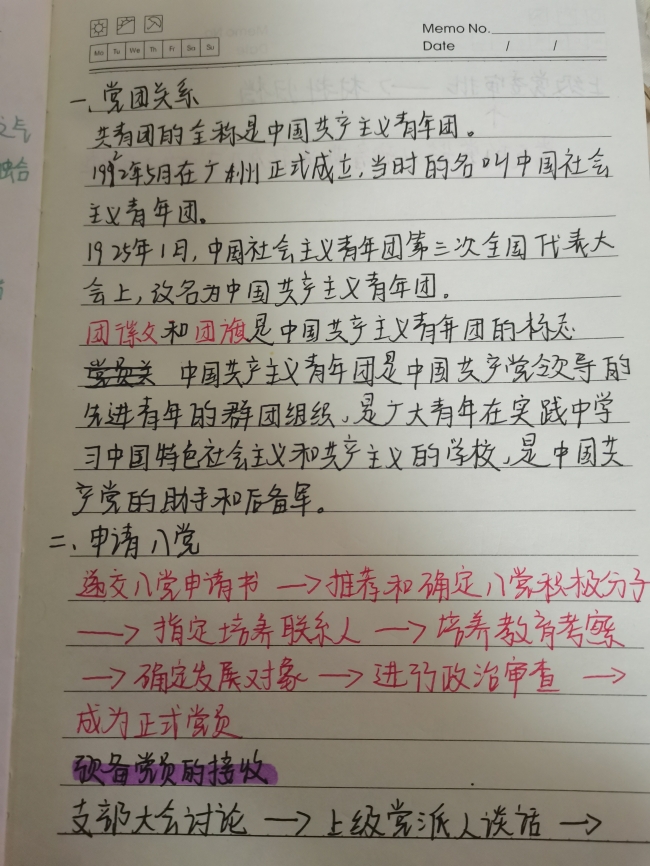 Memo No.
Mo Tu We Th Fr Sa Su
Date / /
一、党团关系
共青团的全称是中国共产主义青年团。
1922年5月在广州正式成立,当时的名叫中国社会
主义青年团。
1925年1月,中国社会主义青年团第三次全国代表大
会上,改名为中国共产主义青年团。
团徽和团旗是中国共产主义青年团的标志
党员关 中国共产主义青年团是中国共产党领导的
先进青年的群团组织,是广大青年在实践中学
习中国特色社会主义和共产主义的学校,是中国共
产党的助手和后备军。
二、申请入党
递交入党申请书 →推荐和确定入党积极分子
→ 指定培养联系人 → 培养教育考察
→ 确定发展对象 → 进行政治审查 →
成为正式党员
预备党员的接收
支部大会讨论 → 上级党派人谈话 →